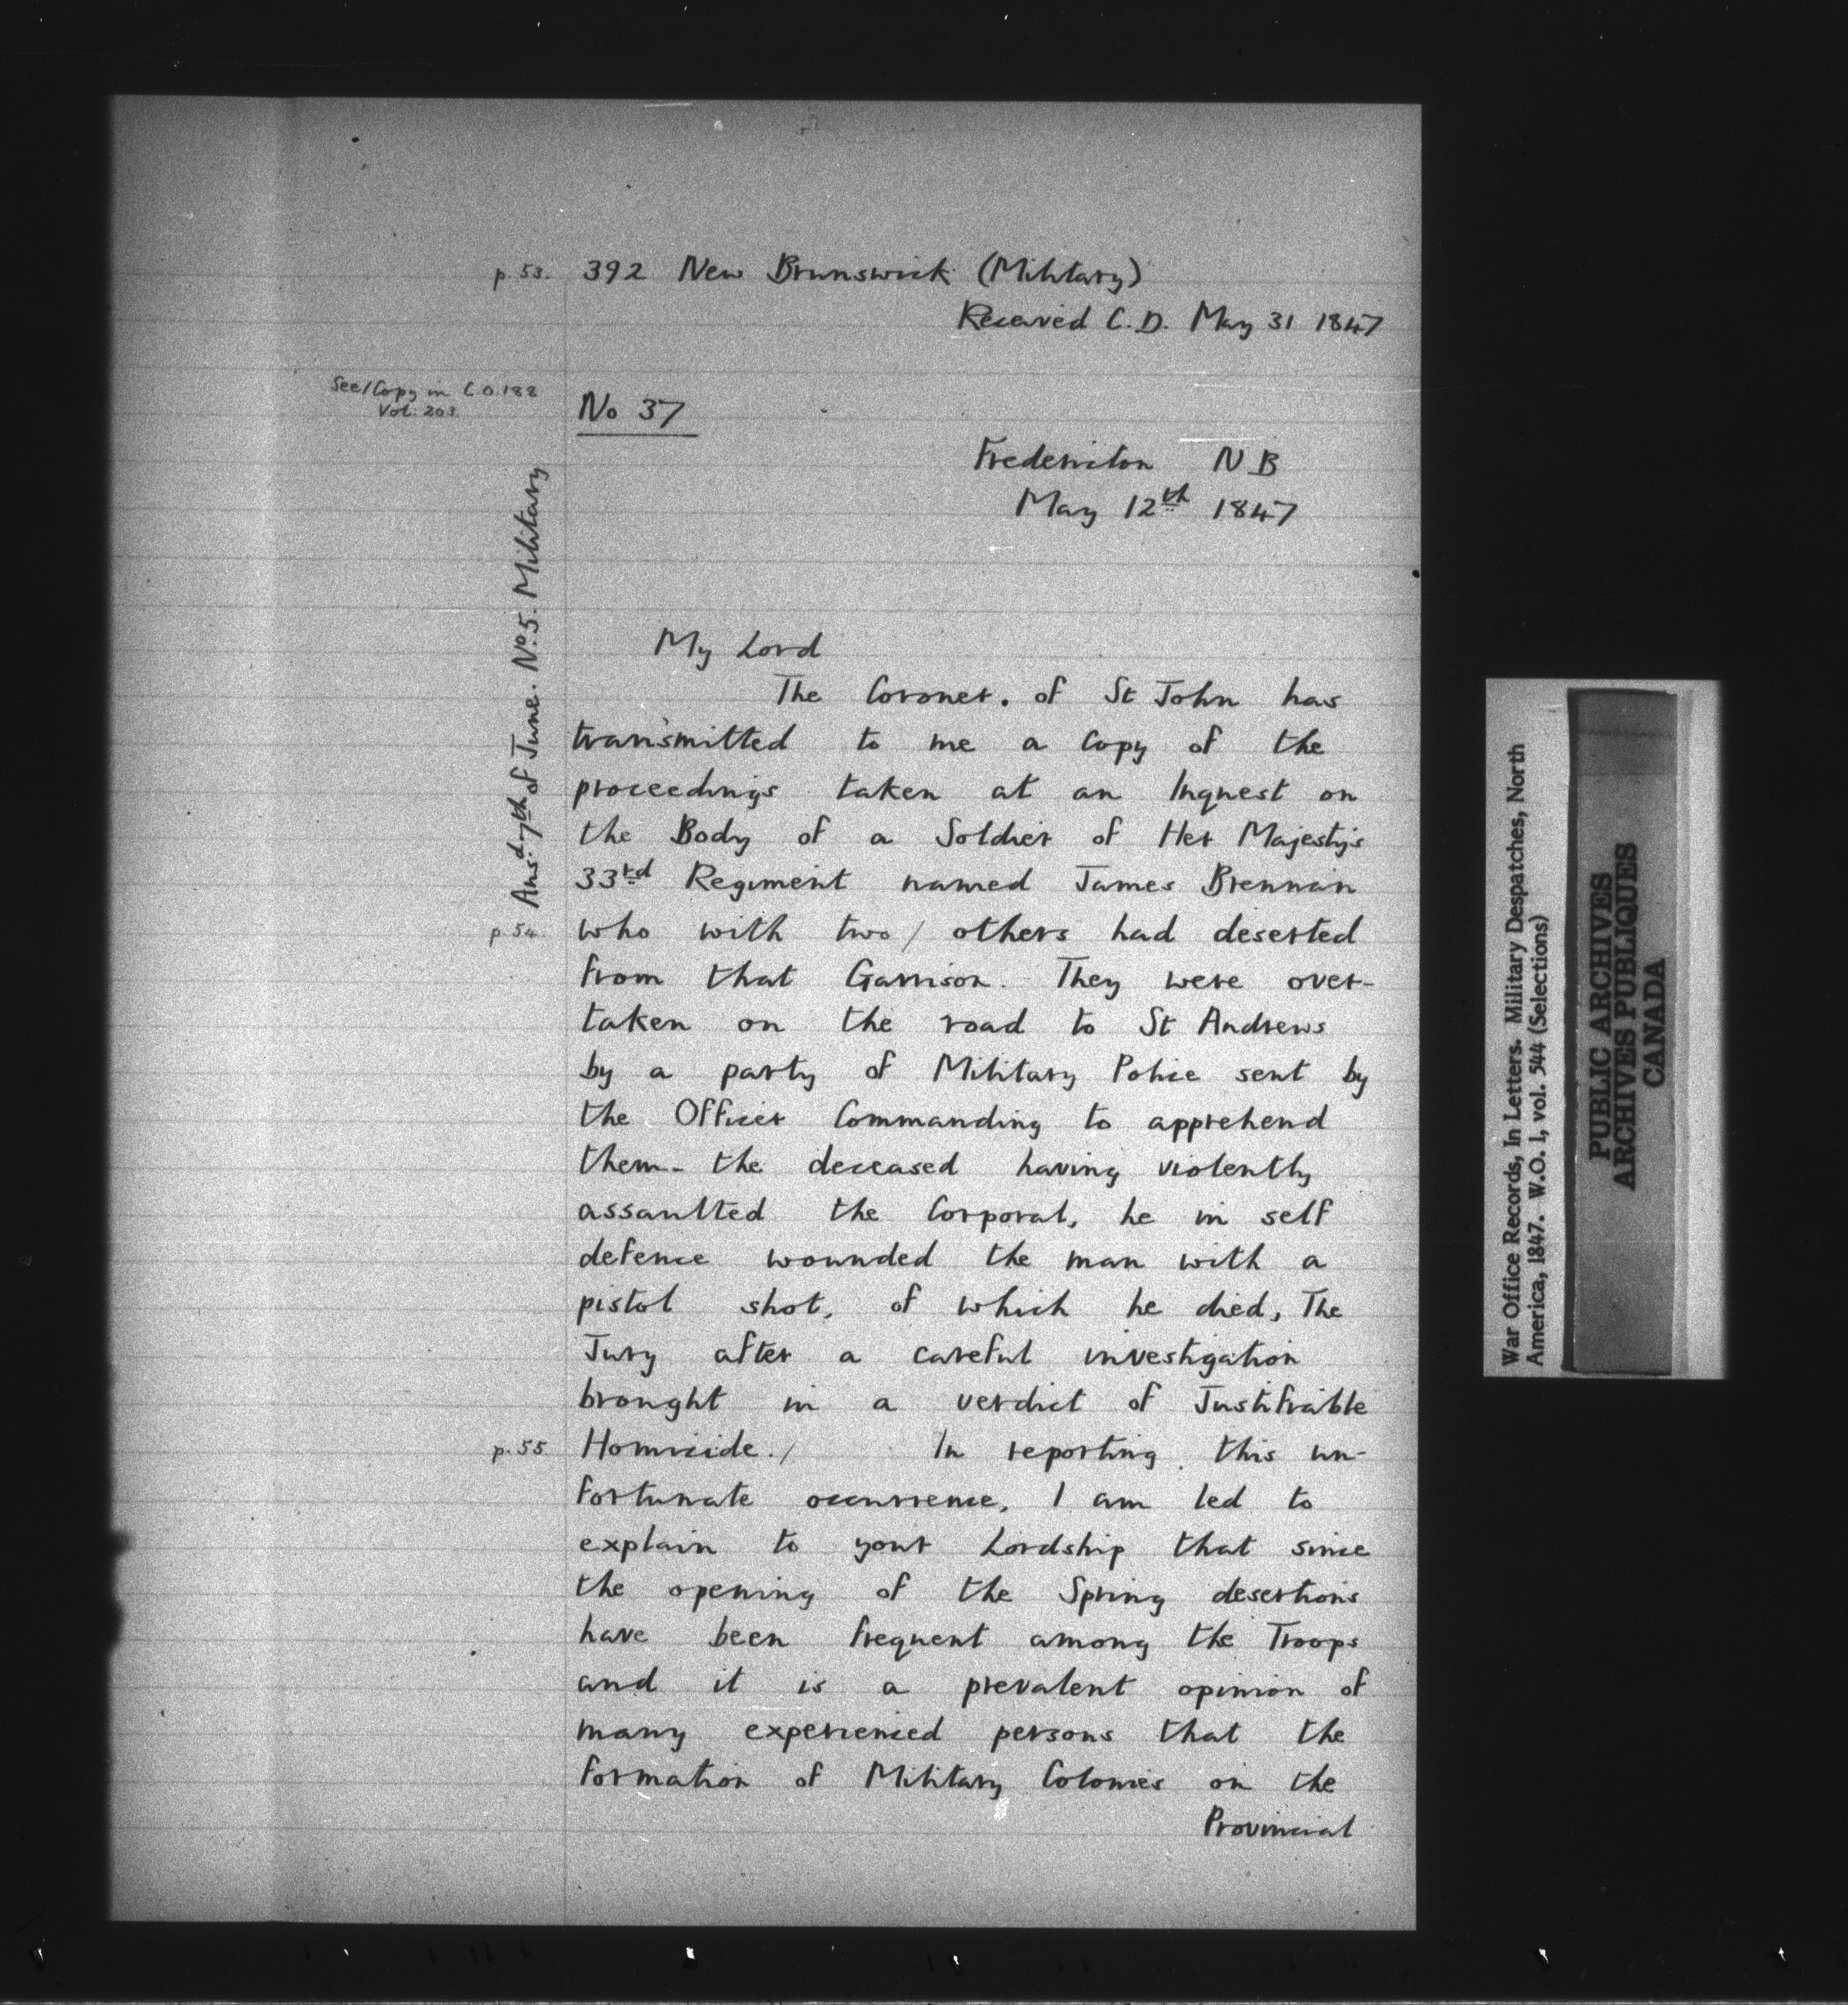 p. 53. 392 New Brunswick (Military)
Received C.D. May 31 1847
See/Copy in C.O. 188
Vol. 203
No 37
Fredericton N B
May 12th 1847
Ansd. 7th of June. No. 5. Military
My Lord
The Coroner. of St John has
transmitted to me a Copy of the
proceedings taken at an Inquest on
the Body of a Soldier of Her Majesty's
33rd Regiment named James Brennan
p. 54. who with two / others had deserted
from that Garrison. They were over-
taken on the road to St Andrews
by a party of Military Police sent by
the Officer Commanding to apprehend
them - the deceased having violently
assaulted the Corporal, he in self
defence wounded the man with a
pistol shot, of which he died, The
Jury after a careful investigation
brought in a verdict of Justifiable
p. 55 Homicide. / In reporting this un-
fortunate occurrence, I am led to
explain to your Lordship that since
the opening of the Spring desertions
have been frequent among the Troops
and it is a prevalent opinion of
many experienced persons that the
formation of Military Colonies on the
Provincial
War Office Records, In Letters. Military Despatches, North
America, 1847. W.O. 1, vol. 544 (Selections)
PUBLIC ARCHIVES
ARCHIVES PUBLIQUES
CANADA